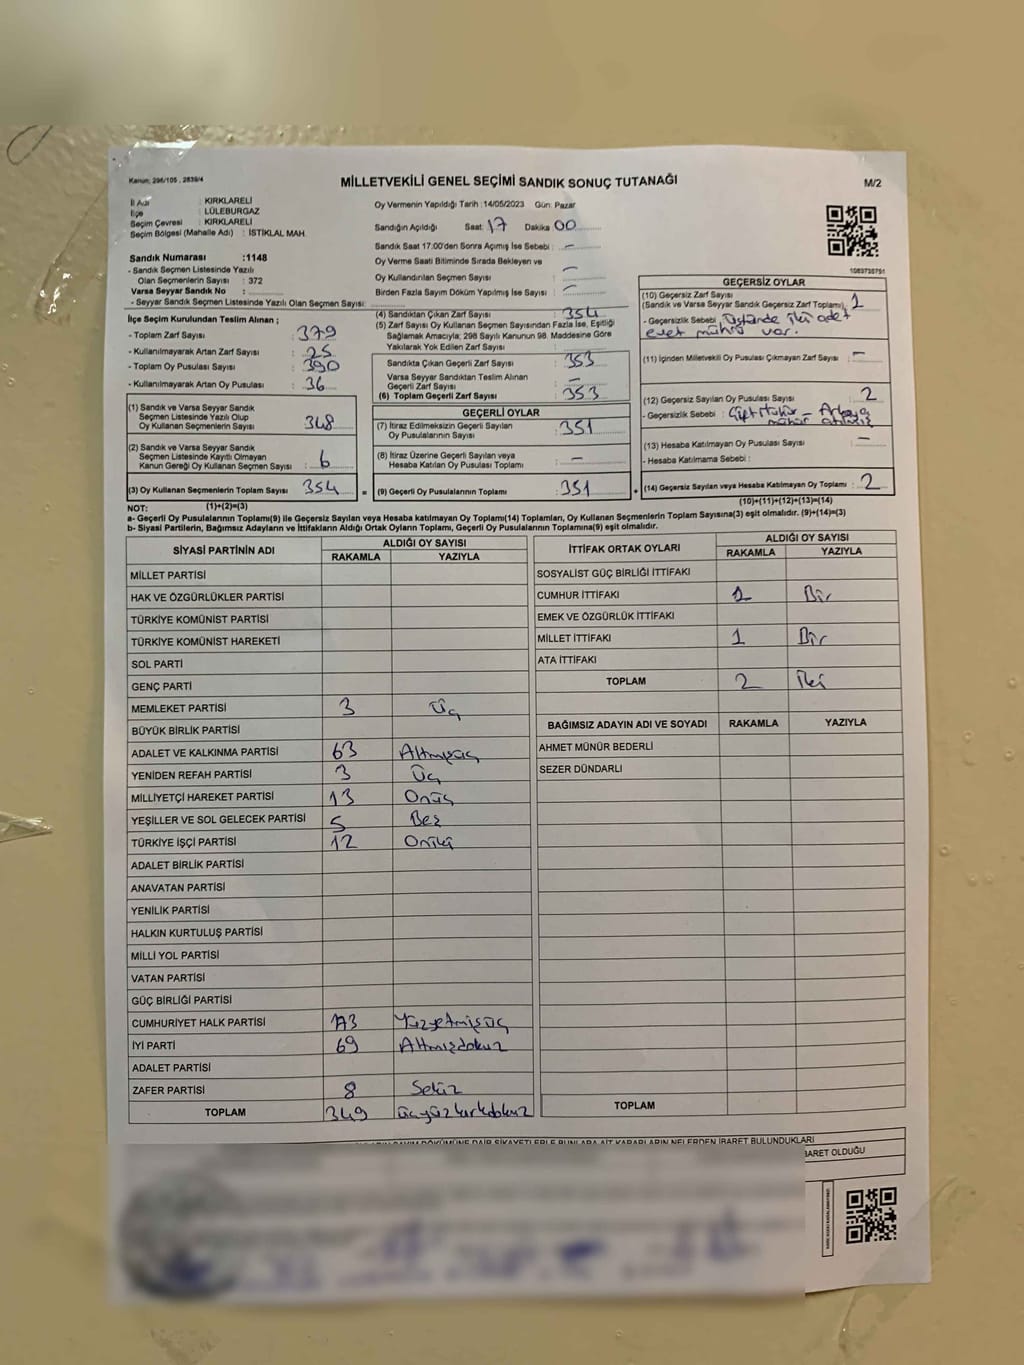 Kanun: 298/105 , 2839/4
MİLLETVEKİLİ GENEL SEÇİMİ SANDIK SONUÇ TUTANAĞI
M/2
İl Adı : KIRKLARELİ
İlçe : LÜLEBURGAZ
Seçim Çevresi : KIRKLARELİ
Seçim Bölgesi (Mahalle Adı) : İSTİKLAL MAH.
Sandık Numarası :1148
- Sandık Seçmen Listesinde Yazılı
Olan Seçmenlerin Sayısı : 372
Varsa Seyyar Sandık No :
- Seyyar Sandık Seçmen Listesinde Yazılı Olan Seçmen Sayısı:
Oy Vermenin Yapıldığı Tarih :14/05/2023 Gün: Pazar
Sandığın Açıldığı Saat: 17 Dakika 00
Sandık Saat 17:00'den Sonra Açımış İse Sebebi : –
Oy Verme Saati Bitiminde Sırada Bekleyen ve
Oy Kullandırılan Seçmen Sayısı : –
Birden Fazla Sayım Döküm Yapılmış İse Sayısı : –
1083735751
İlçe Seçim Kurulundan Teslim Alınan ;
- Toplam Zarf Sayısı : 379
- Kullanılmayarak Artan Zarf Sayısı : 25
- Toplam Oy Pusulası Sayısı : 390
- Kullanılmayarak Artan Oy Pusulası : 36
(1) Sandık ve Varsa Seyyar Sandık
Seçmen Listesinde Yazılı Olup
Oy Kullanan Seçmenlerin Sayısı : 348
(2) Sandık ve Varsa Seyyar Sandık
Seçmen Listesinde Kayıtlı Olmayan
Kanun Gereği Oy Kullanan Seçmen Sayısı : 6
(3) Oy Kullanan Seçmenlerin Toplam Sayısı : 354
(1)+(2)=(3)
(4) Sandıktan Çıkan Zarf Sayısı : 354
(5) Zarf Sayısı Oy Kullanan Seçmen Sayısından Fazla İse, Eşitliği
Sağlamak Amacıyla; 298 Sayılı Kanunun 98. Maddesine Göre
Yakılarak Yok Edilen Zarf Sayısı :
Sandıkta Çıkan Geçerli Zarf Sayısı : 353
Varsa Seyyar Sandıktan Teslim Alınan
Geçerli Zarf Sayısı : –
(6) Toplam Geçerli Zarf Sayısı : 353
GEÇERLİ OYLAR
(7) İtiraz Edilmeksizin Geçerli Sayılan
Oy Pusulalarının Sayısı : 351
(8) İtiraz Üzerine Geçerli Sayılan veya
Hesaba Katılan Oy Pusulası Toplamı : –
= (9) Geçerli Oy Pusulalarının Toplamı : 351
GEÇERSİZ OYLAR
(10) Geçersiz Zarf Sayısı
(Sandık ve Varsa Seyyar Sandık Geçersiz Zarf Toplamı) : 1
- Geçersizlik Sebebi : Üstünde iki adet
evet mührü var.
(11) İçinden Milletvekili Oy Pusulası Çıkmayan Zarf Sayısı : –
(12) Geçersiz Sayılan Oy Pusulası Sayısı : 2
- Geçersizlik Sebebi : Çift Mühür – Arkaya
mühür
(13) Hesaba Katılmayan Oy Pusulası Sayısı : –
- Hesaba Katılmama Sebebi :
+ (14) Geçersiz Sayılan veya Hesaba Katılmayan Oy Toplamı : 2
(10)+(11)+(12)+(13)=(14)
NOT:
a- Geçerli Oy Pusulalarının Toplamı(9) ile Geçersiz Sayılan veya Hesaba katılmayan Oy Toplamı(14) Toplamları, Oy Kullanan Seçmenlerin Toplam Sayısına(3) eşit olmalıdır. (9)+(14)=(3)
b- Siyasi Partilerin, Bağımsız Adayların ve İttifakların Aldığı Ortak Oyların Toplamı, Geçerli Oy Pusulalarının Toplamına(9) eşit olmalıdır.
SİYASİ PARTİNİN ADI
ALDIĞI OY SAYISI
RAKAMLA YAZIYLA
MİLLET PARTİSİ
HAK VE ÖZGÜRLÜKLER PARTİSİ
TÜRKİYE KOMÜNİST PARTİSİ
TÜRKİYE KOMÜNİST HAREKETİ
SOL PARTİ
GENÇ PARTİ
MEMLEKET PARTİSİ 3 Üç
BÜYÜK BİRLİK PARTİSİ
ADALET VE KALKINMA PARTİSİ 63 Altmışüç
YENİDEN REFAH PARTİSİ 3 Üç
MİLLİYETÇİ HAREKET PARTİSİ 13 Onüç
YEŞİLLER VE SOL GELECEK PARTİSİ 5 Beş
TÜRKİYE İŞÇİ PARTİSİ 12 Oniki
ADALET BİRLİK PARTİSİ
ANAVATAN PARTİSİ
YENİLİK PARTİSİ
HALKIN KURTULUŞ PARTİSİ
MİLLİ YOL PARTİSİ
VATAN PARTİSİ
GÜÇ BİRLİĞİ PARTİSİ
CUMHURİYET HALK PARTİSİ 173 Yüzyetmişüç
İYİ PARTİ 69 Altmışdokuz
ADALET PARTİSİ
ZAFER PARTİSİ 8 Sekiz
TOPLAM 349 üçyüzkırkdokuz
İTTİFAK ORTAK OYLARI
ALDIĞI OY SAYISI
RAKAMLA YAZIYLA
SOSYALİST GÜÇ BİRLİĞİ İTTİFAKI
CUMHUR İTTİFAKI 1 Bir
EMEK VE ÖZGÜRLÜK İTTİFAKI
MİLLET İTTİFAKI 1 Bir
ATA İTTİFAKI
TOPLAM 2 İki
BAĞIMSIZ ADAYIN ADI VE SOYADI RAKAMLA YAZIYLA
AHMET MÜNÜR BEDERLİ
SEZER DÜNDARLI
TOPLAM
SAYIM DÖKÜMÜNE DAİR ŞİKAYETLERLE BUNLARA AİT KARARLARIN NELERDEN İBARET BULUNDUKLARI
BARET OLDUĞU